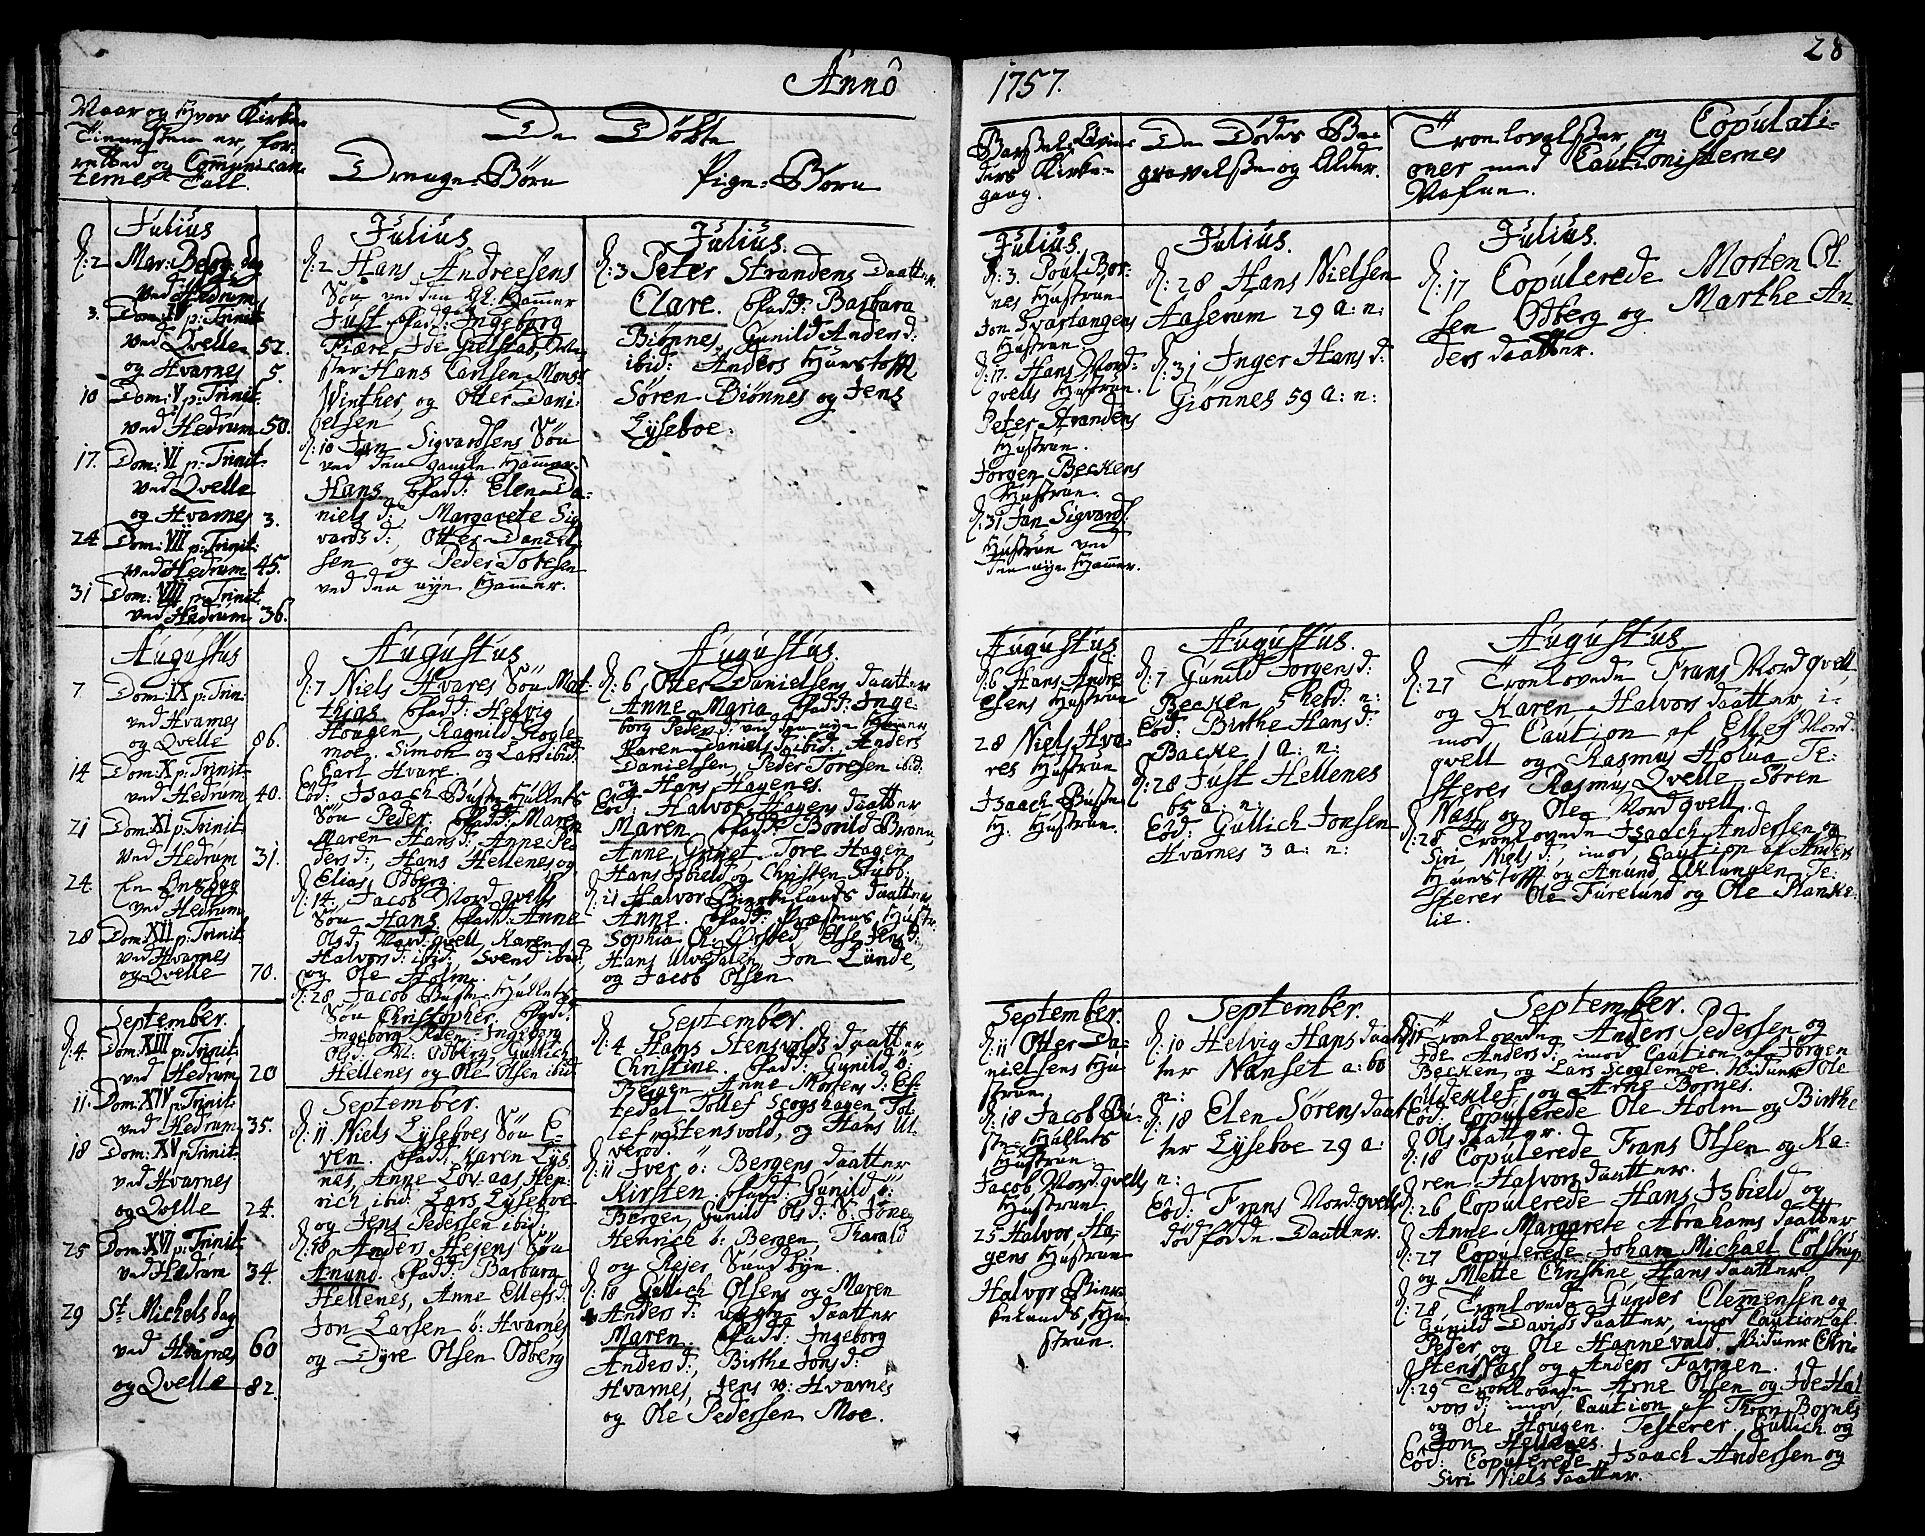 28
Anno
1757.
Naar og Hvor Kirke-
Tienesten er, for-
retted og Communican-
ternes Tall.
De Døbte
Drenge-Børn
Pige-Børn
Kirke-
gang.
De Dødes Be-
gravelsse og Alder.
Troelovelsser, og Copulati-
oner med Cautionisternes
Nafne.
Julius
d: 2 Mar: Besøg: dag
ved Hedrum
3. Dom: IV p: Trinit
ved Qvelle 52.
og Hvarnes 5.
10 Dom: V p: Trinit.
ved Hedrum 50.
17. Dom: VI p: Trinit.
ved Qvelle
og Hvarnes 3.
24 Dom: VII p: Trinit:
ved Hedrum 45.
31 Dom: VIII p: Trinit.
ved Hedrum 36.
Julius
d: 2 Hans Andreesens
Søn ved den gl: Hammer
Just. Fadd: Ingeborg
Fiære, Ide Gielstad,
Hans Carlsen Mons:
Winther og Otter Dani-
elsen
d: 10 Jan Sigvardsens Søn
ved den gamle Hammer
Hans. Fadd: Elen Da-
niels d:, Margarete Sig
vards d:, Otter Daniel
sen og Peder Toresen
ved den nye Hammer.
Julius.
d: 3 Peter Strandens Daatter
Clare. Fadd: Barbara
Biønnes, Gunild Anders d:
ibid: Anders Hunstoff
Søren Biønnes og Jens
Lyseboe.
Julius.
d: 3. Poul Bor-
nes Hustrue
Jon Svartangens
Hustrue.
d: 17. Hans Nord-
qvells Hustrue.
Peter Strandens
Hustrue.
Jørgen Beckens
Hustrue.
d: 31 Jan Sigvards:
Hustrue ved
den nye Hammer.
Julius.
d: 28 Hans Nielsen
Aaserum 29 a: n:
d: 31 Inger Hans d:
Giønnes 59 a: n:
Julius.
d: 17 Copulerede Morten Ol
sen Odberg og Marthe An-
ders daatter.
Augustus
7 Dom: IX p: Trin:
ved Hvarnes
og Qvelle 86.
14 Dom: X p: Trinit.
ved Hedrum 40.
21 Dom: XI p: Trinit
ved Hedrum 31.
24. En Onsdag
ved Hedrum
28 Dom: XII p: Trinit.
ved Hvarnes
og Qvelle 70.
Augustus
d: 7 Niels Hvares Søn Mat-
thias Fadd: Helvig
Hougen, Ragnild Skogle-
moe, Simon og Lars ibid:
Carl Hvare.
Eod: Isaach Buste-Hullets
Søn Peder. Fadd: Maren
Maren Hans d: Anne Pe-
ders d:, Hans Hellenes og
Elias Odberg.
d: 14. Jacob Nord qvells
Søn Hans Fadd: Anne
Ols d: Nord qvell, Karen
Halvors d: ibid: Svend ibid,
og Ole Holm.
d: 28 Jacob Buste-Hullets
Søn Christopher. Fadd:
Ingeborg Peder, Ingeborg
Ols d: N: Odberg, Gullich
Hellenes og Ole Olsen ibid
Augustus.
d: 6 Otter Danielsens Daatter
Anne Maria Fadd: Inge
borg Peders d: ved den nye Hammer
Karen Daniels d: ibid: Anders
Danielsen, Peder Toresen ibid.
og Hans Hagenes.
Eod: Halvor Hagens Daatter
Maren Fadd: Borild
Anne Grinet, Tore Hagen
Hans Isbield og Christen Stubb:
d: 21 Halvor Bierkelands Daatter
Anne. Fadd: Hustr:
Sophia Ørsted, Else Jens d:
Hans Ulvedalen, Jon Lunde,
og Jacob Olsen
Augustus.
d: 6 Hans Andre
esens Hustrue
28 Niels Hva-
res Hustrue
Isaach Buste
H: Hustrue.
Augustus.
d: 7 Gunild Jørgens d:
Becken 5 heb d: n:
Eod: Birthe Hans d:
Backe 1 a: n:
d: 28 Just Hellenes
65 a: n:
Eod: Gullich Jonsen
Hvarnes 3 a: n:
Augustus
d: 27 Troelovede Frans Nord qvell
og Karen Halvors daatter, i-
mod Caution af Ellef Nord-
qvell og Rasmus Holua, Te-
sterer Rasmus Qvelle, Søren
Nass og Ole Nord qvell.
d: 28 Troelovede Isaach Andersen og
Siri Niels d:, imod Caution af Anders
Hunstoff og Amund Oklungen, Te-
sterer Ole Furelund og Ole Planke-
lie.
September.
d: 4 Dom: XIII p: Trinit.
ved Hedrum 20
11. Dom: XIV p: Trinit.
ved Hedrum 35.
18 Dom: XV p: Trinit.
ved Hvarnes
og Qvelle 24.
25 Dom: XVI p: Trinit
ved Hedrum 34.
29 St Michels dag
ved Hvarnes 60
og Qvelle 82.
September.
d: 11 Niels Lyseboes Søn E-
ven. Fadd: Karen Lys-
nes, Anne Løv-aas Hen-
rich ibid: Lars Lyseboe
og Jens Pedersen ibid:
d: 18 Anders Hejens Søn
Amund. Fadd: Barburg
Hellenes, Anne Ellefs d:
Jon Larsen ö: Hvarnes
og Dyre Olsen Odberg
September.
d: 4 Hans Stensvolds daatter
Christine. Fadd: Gunild ö:
Bergen, Anne Mortens d: Ef-
tedal Tollef Scogshagen Tol
lef Stensvold, og Hans Ul-
verod.
d: 11 Iver ö: Bergens Daatter
Kirsten. Fadd: Gunild ö:
Bergen, Gunild Ols d: S: Jøne
Henrich ö: Bergen, Tharald
og Rejer Sundbyen.
d: 18 Gullich Olsens og Maren
Anders d: Daatter
Maren Fadd: Ingeborg
Anders d:, Birthe Jons d:
Hvarnes, Jens v: Hvarnes
og Ole Pedersen Moe.
September.
d: 11 Otter Da-
nielsens Hu-
strue.
d: 18 Jacob Bu-
ste-Hullets
Hustrue.
Jacob Nord qvells
Hustrue.
25 Halvor Ha-
gens Hustrue
Halvor Bier-
kelands Hu-
strue.
September.
d: 10 Helvig Hans daat-
ter Nanset a: 60
n:
d: 18 Elen Sørens daat-
ter Lyseboe 29 a:
n:
Eod: Frans Nord qvells
dødfødde Daatter.
September.
Troelovede Anders Pedersen og
Ide Anders d: imod Caution af Jørgen
Becken og Lars Scoglemoe. Vidner Ole
og Arne Bornes.
Eod: Copulerede Ole Holm og Birthe
Ols daatter.
d: 18 Copulerede Frans Olsen og Ka-
ren Halvors daatter.
d: 26 Copulerede Hans Isbield og
Anne Margarete Abrahams daatter
d: 27 Copulerede Johan Michael Colstrup
og Mette Christine Hans daatter
d: 28 Troelovede Gunder Clemensen og
Gunild Davids daatter, imod Caution af
Peder og Ole Hannevald. Vidner Chri
stens Nass og Anders Farmen.
d: 29 Troelovede Arne Olsen og Ide Hal
vors d: imod Caution af Tron Bornes
og Ole Hougen. Testerer Gullich og
Jon Hellenes.
Eod: Copulerede Isaach Andersen og
Siri Niels daatter.